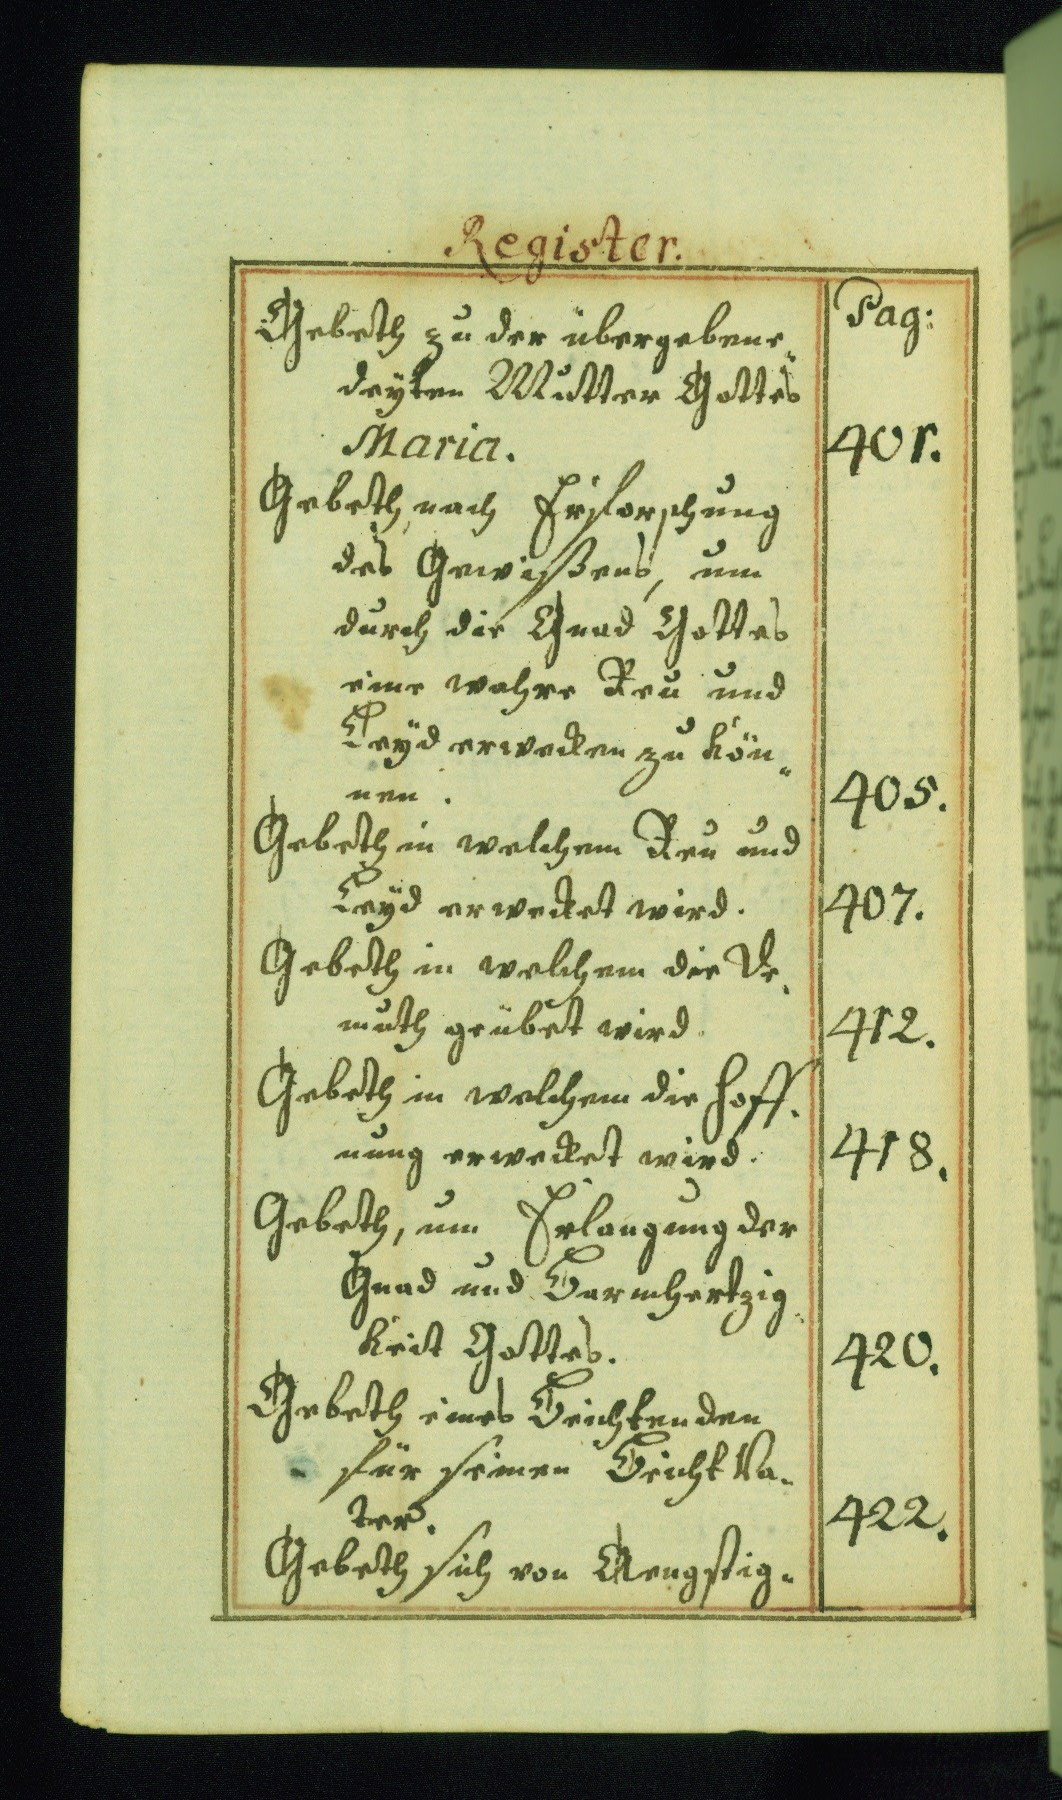 Register.
Pag:
Gebeth zu der übergebene-
deyten Mutter Gottes
Maria. 401.
Gebeth, nach Erforschung
des Gewißens, um
durch die Gnad Gottes
eine wahre Reu und
Leÿd erwecken zu kön-
nen. 405.
Gebeth in welchem Reu und
Leÿd erwecket wird. 407.
Gebeth in welchem die De-
muth geübet wird. 412.
Gebeth in welchem die Hoff-
nung erwecket wird. 418.
Gebeth, um Erlangung der
Gnad und Barmhertzig-
keit Gottes. 420.
Gebeth eines Beichtenden
für seinen Beicht Va-
ter. 422.
Gebeth sich von Aengstig-